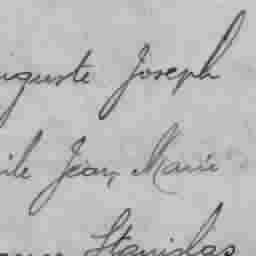 uguste Joseph
ile Jean, Marie
Stanislas